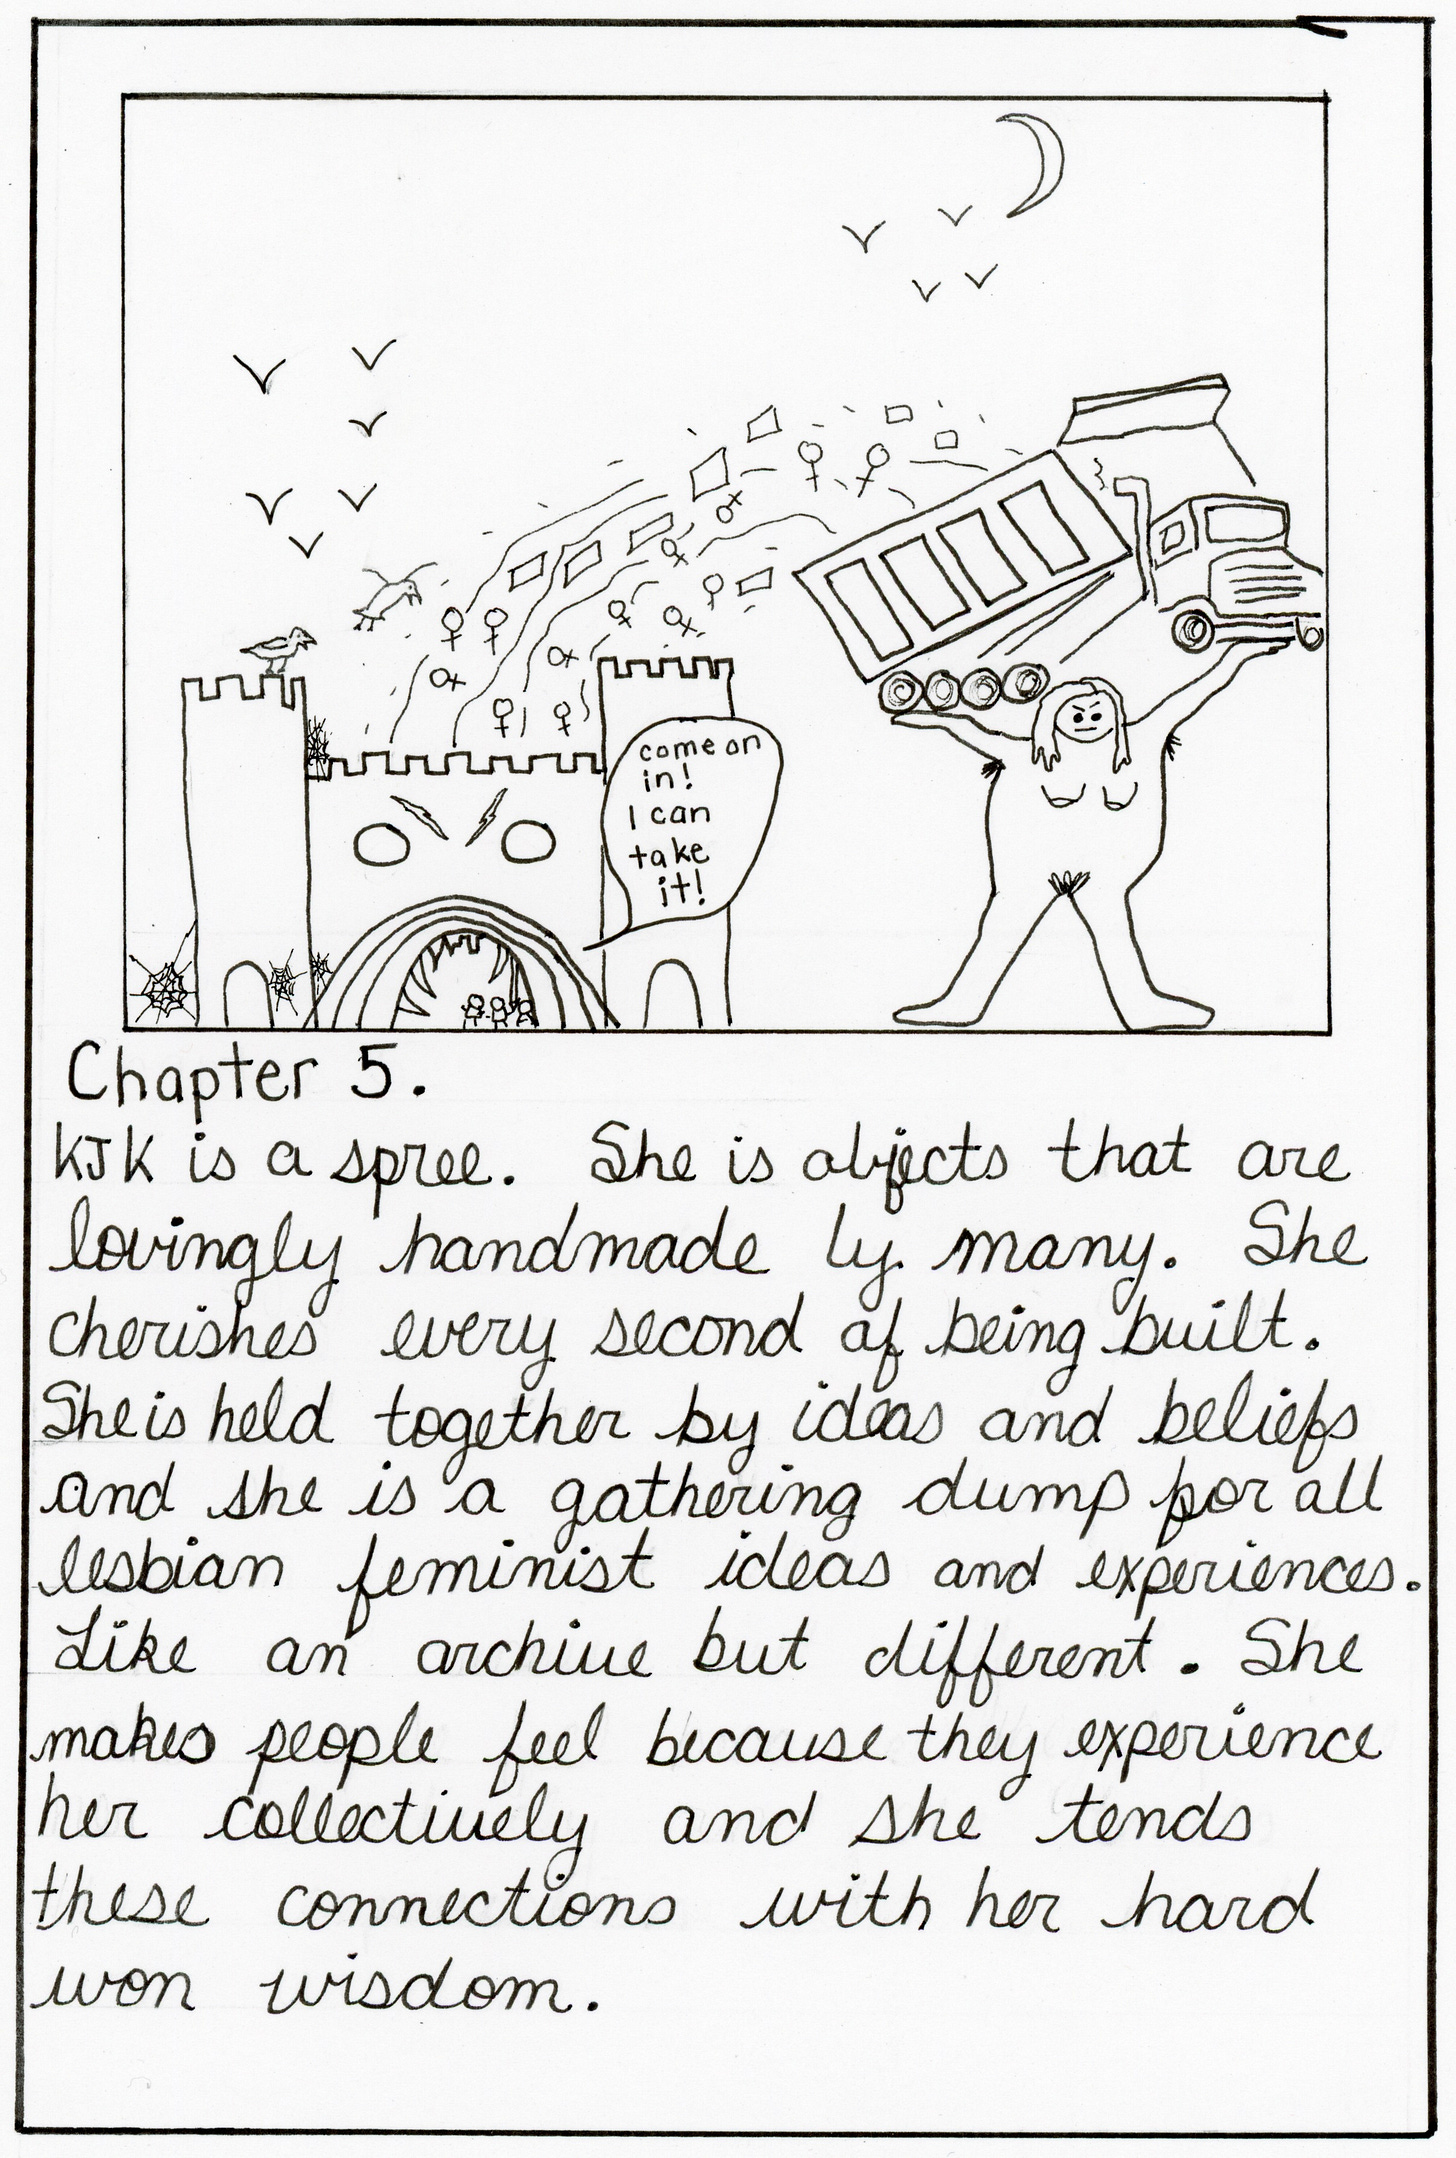 come on
in!
I can
take
it!
Chapter 5.
KJK is a spree. She is objects that are
lovingly handmade by many. She
cherishes every second of being built.
She is held together by ideas and beliefs
and she is a gathering dump for all
lesbian feminist ideas and experiences.
Like an archive but different. She
makes people feel because they experience
her collectively and she tends
these connections with her hard
won wisdom.